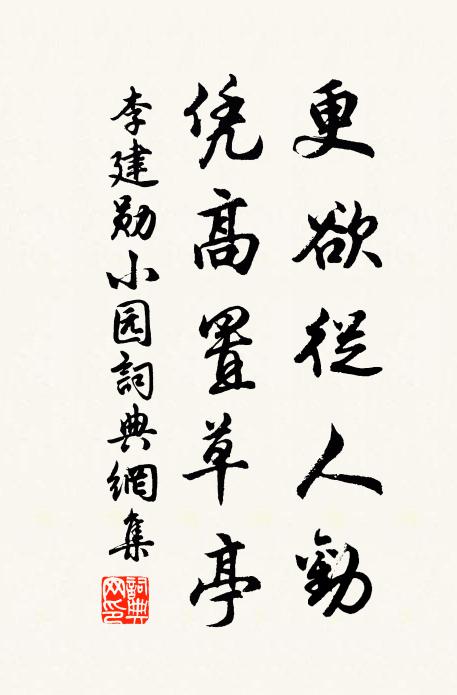 更欲從人勸
凭高置草亭
李建勋小园詞典網集
詞典网印